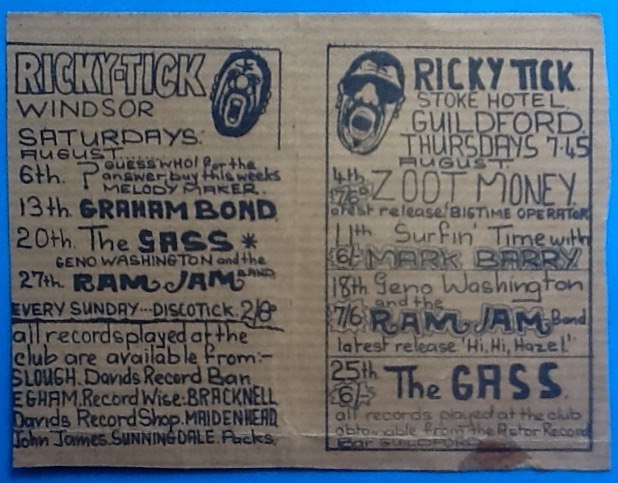 RICKY-TICK
WINDSOR
SATURDAYS.
AUGUST
6th. ? GUESS WHO! for the
answer buy this weeks
MELODY MAKER.
13th. GRAHAM BOND
20th. The GASS *
GENO WASHINGTON and the
27th. RAM JAM BAND
EVERY SUNDAY---DISCOTICK. 2/8
all records played at the
club are available from:-
SLOUGH. Davids Record Ban
EGHAM. Record Wise. BRACKNELL
Davids Record Shop. MAIDENHEAD
John James. SUNNINGDALE. Packs.
RICKY TICK.
STOKE HOTEL.
GUILDFORD.
THURSDAYS 7.45
AUGUST.
4th. ZOOT MONEY
7/6
atest release. 'BIGTIME OPERATOR
11th Surfin' Time with
6/- MARK BARRY
18th Geno Washington
and the
7/6 RAM JAM Band
latest release 'Hi, Hi, Hazel.'
25th The GASS.
6/-
all records played at the club
obtainable from the Astor Record
Bar GUILDFORD